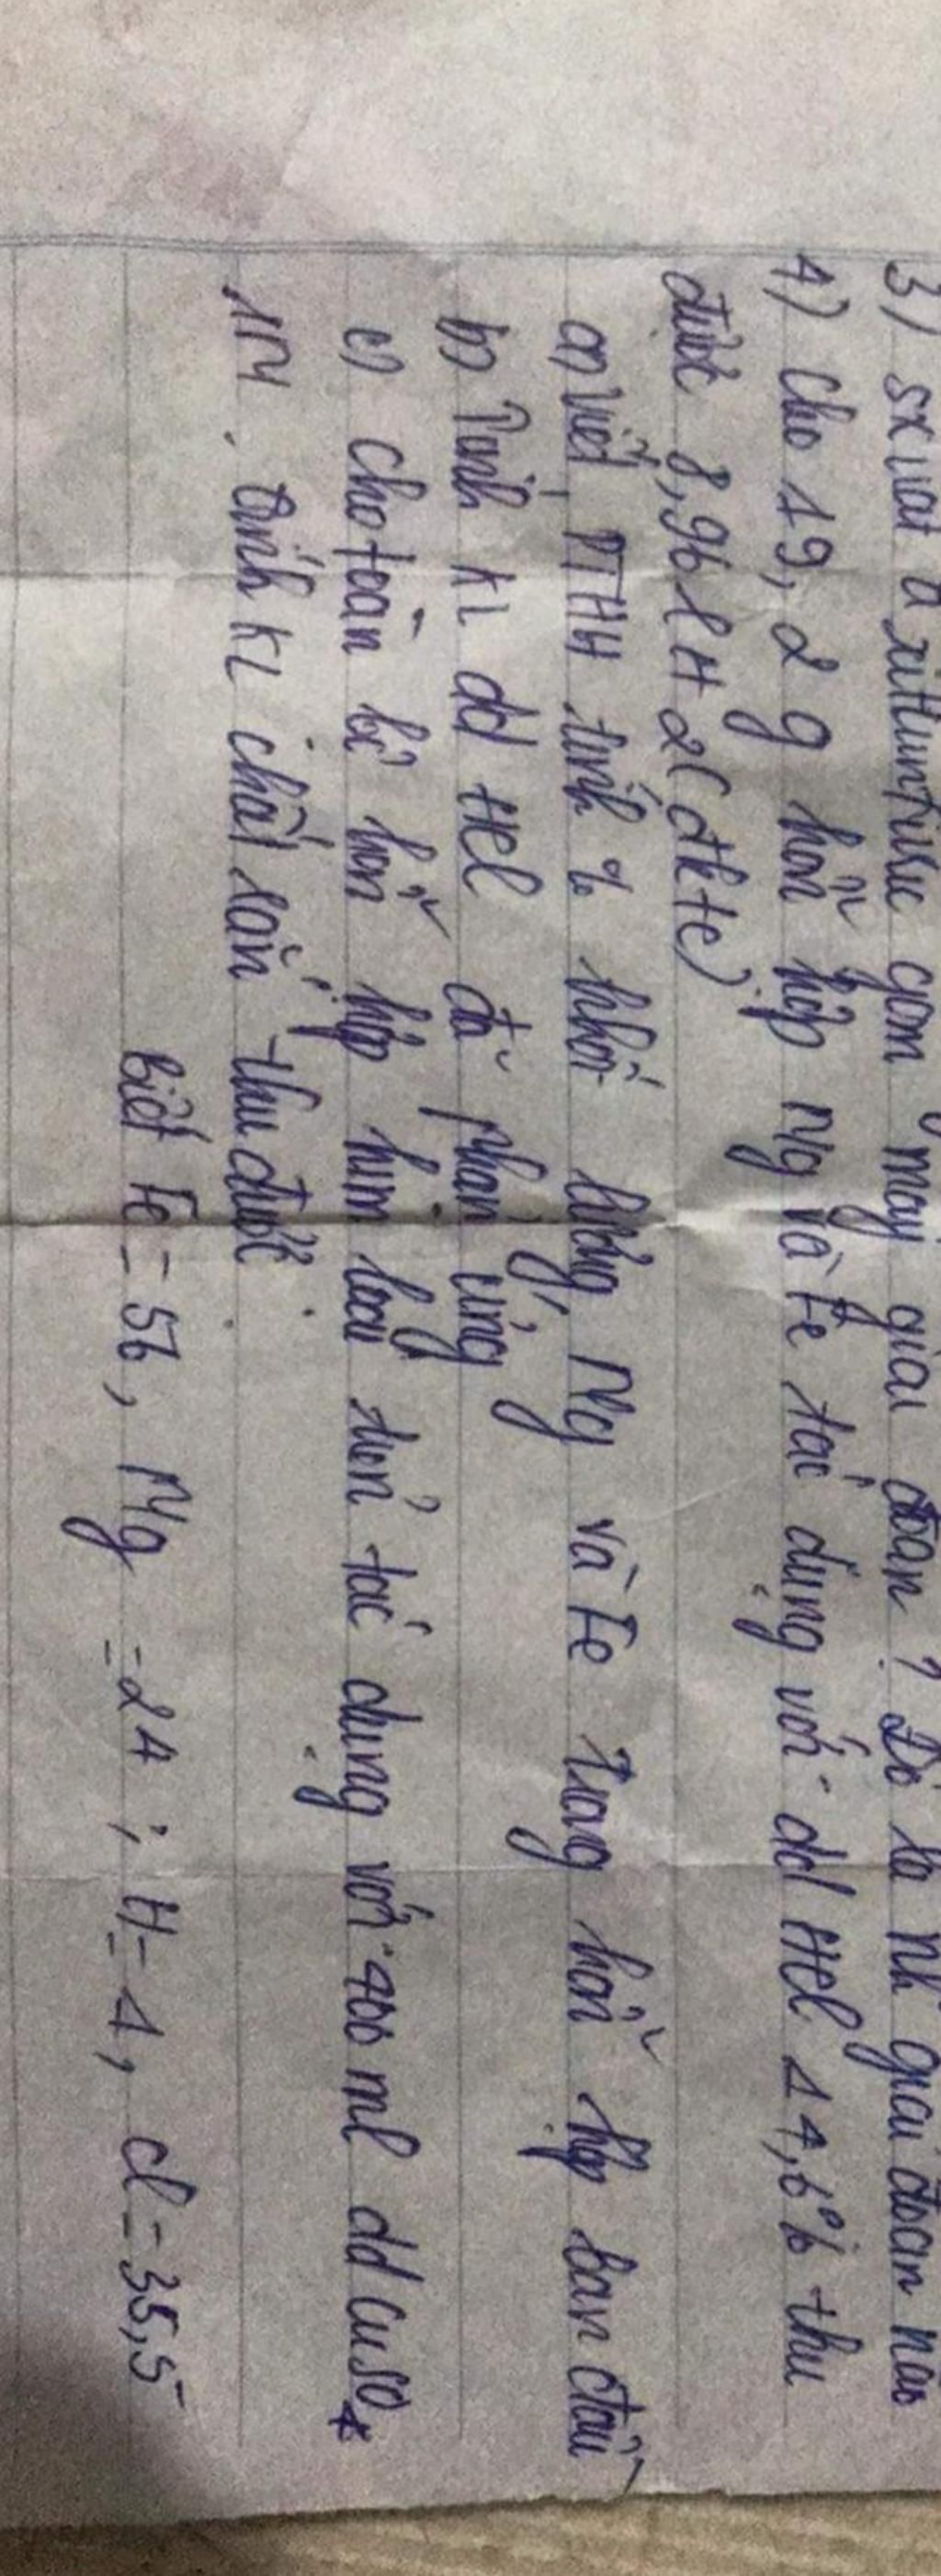 3) sx uất axit sunfuric gồm mấy giai đoạn ? Đó là nh giai đoạn nào
4) cho 19,2 g hỗn hợp Mg và Fe tác dụng với dd HCl 14,6% thu
được 8,96 l H2 (đktc)
a) viết PTHH tính % khối lượng Mg và Fe trong hỗn hợp ban đầu
b) Tính kl dd HCl đã phản ứng
c) cho toàn bộ hỗn hợp kim loại trên tác dụng với 400 ml dd CuSO4
1M. tính kl chất rắn thu được.
biết Fe = 56, Mg = 24 ; H = 1, Cl = 35,5